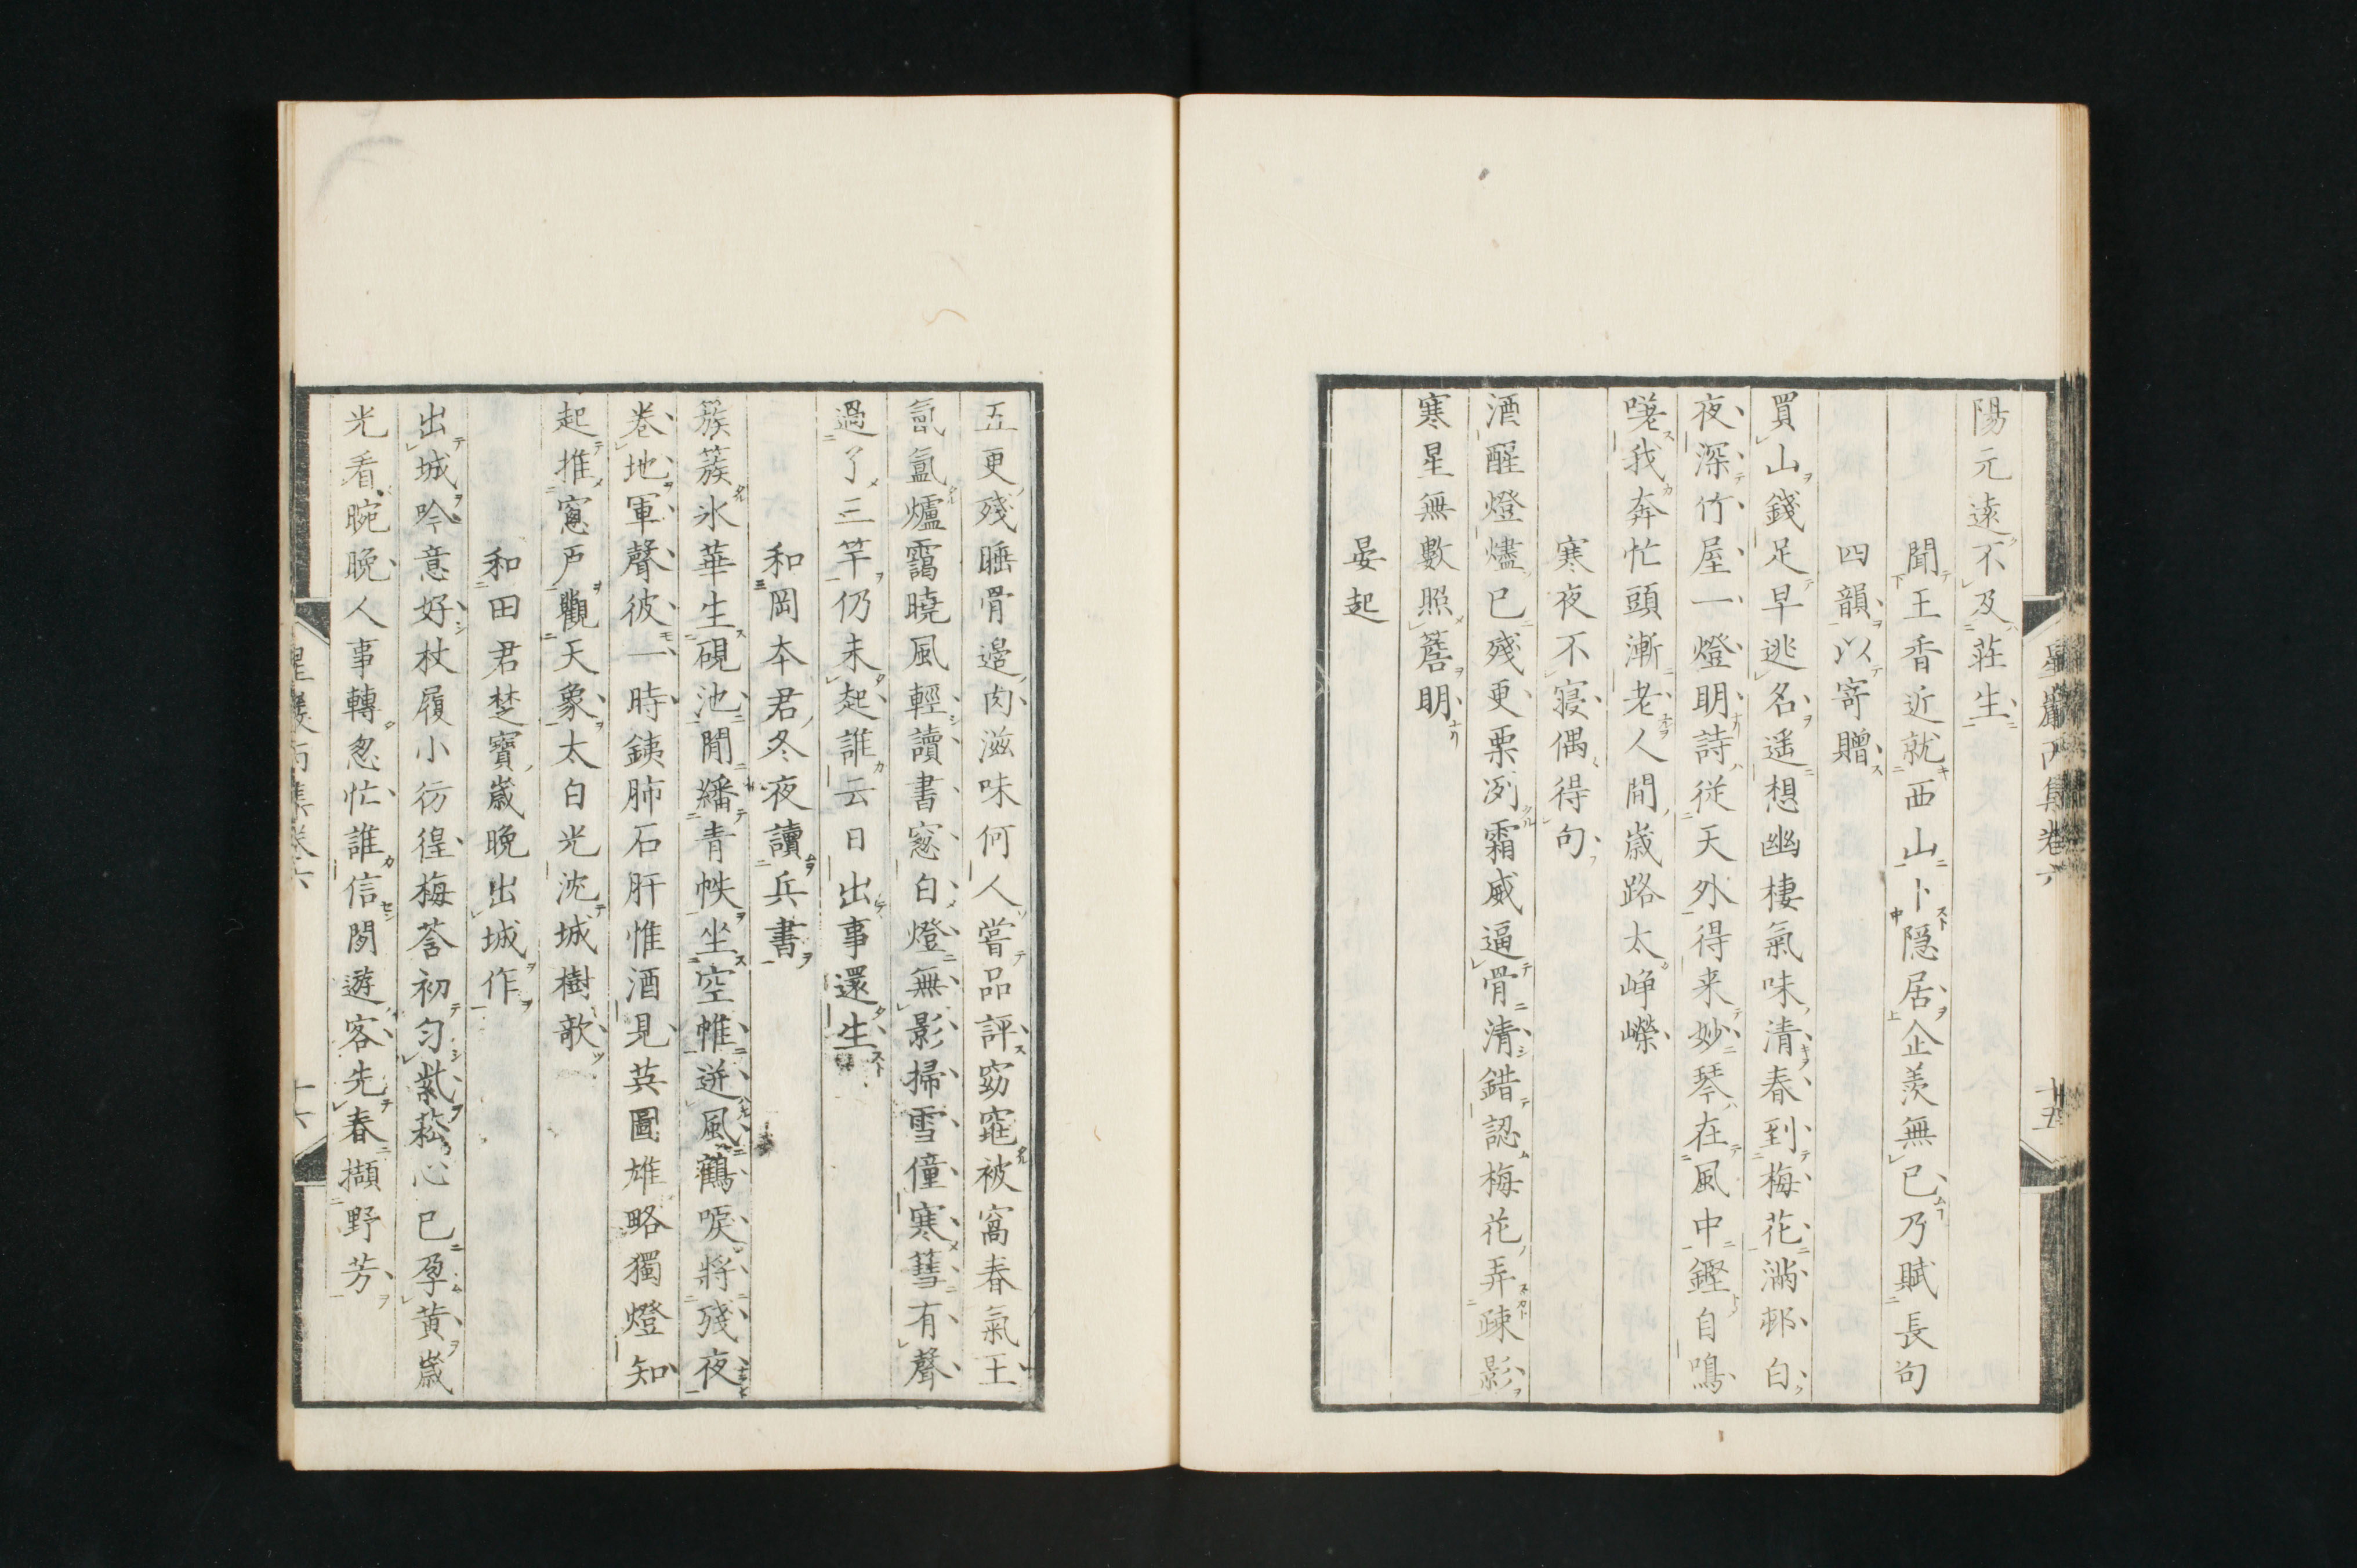 陽元遠不及莊生
聞王香近就西山卜隱居企羨無已乃賦長句
四韻以寄贈
買山錢足早逃名遥想幽棲氣味清春到梅花滿邨白
夜深竹屋一燈明詩從天外得来妙琴在風中鏗自鳴
嗟我奔忙頭漸老人間歲路太崢嶸
寒夜不寢偶得句
酒醒燈燼已殘更栗冽霜威逼骨清錯認梅花弄疎影
寒星無數照簷明
晏起
五更殘睡骨邊肉滋味何人嘗品評窈窕被窩春氣王
氤氳爐靄曉風輕讀書窓白燈無影掃雪僮寒篲有聲
過了三竿仍未起誰云日出事還生
和岡本君冬夜讀兵書
簇簇氷華生硯池閒繙青帙坐空帷迸風鶴唳將殘夜
卷地軍聲彼一時銕肺石肝惟酒見英圖雄略獨燈知
起推窓戸觀天象太白光沈城樹欹
和田君楚寶歲晚出城作
出城吟意好杖履小彷徨梅萼初勻紫菘心已孕黄歲
光看晼晚人事轉怱忙誰信閒遊客先春擷野芳
星巖丙集卷六
十五
十六